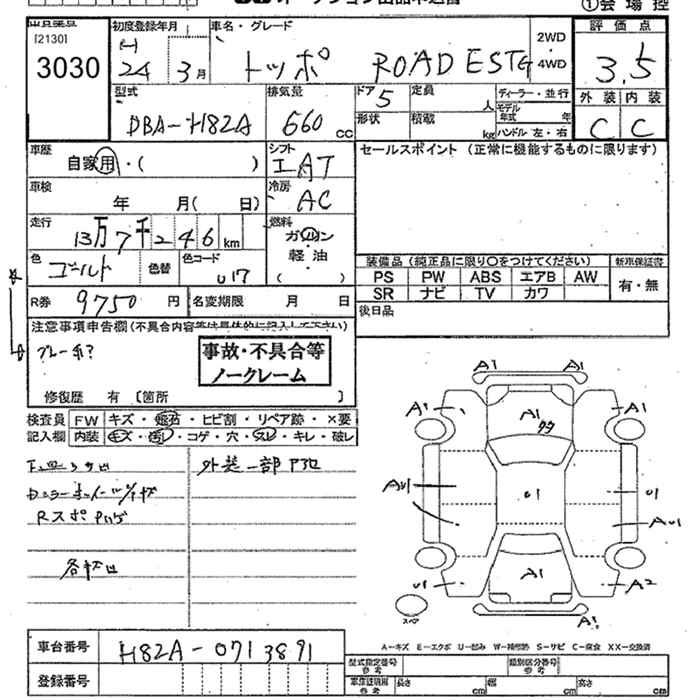 ①会場控
[2130]
3030
初度登録年月
24 3月
車名・グレード
トッポ ROAD EST
2WD
4WD
評価点
3.5
外装 内装
C C
型式
DBA-H82A
排気量
660 CC
ドア 5
形状
定員 人
積載 kg
ディーラー・並行
モデル年式 年
ハンドル 左・右
車歴
自家用・( )
シフト
IAT
セールスポイント(正常に機能するものに限ります)
車検
年 月( 日)
冷房
AC
走行
13万7千246km
燃料
ガソリン
軽・油
( )
色
ゴールド 色替
色コード
U17
装備品(純正品に限り〇をつけてください)
新車保証書
PS PW ABS エアB AW
有・無
SR ナビ TV カワ
R券
9750 円
名変期限 月 日
後日品
注意事項申告欄
事故・不具合等
ノークレーム
修復歴 有〔箇所 〕
検査員 FW キズ・飛石・ヒビ割・リペア跡・×要
記入欄 内装 キズ・汚レ・コゲ・穴・スレ・キレ・破レ
外装一部
各キズ凹
A1 A1
A1 A1 A1
AU1 U1 U1
AU1
U1 A1 A2
スペア
A1
車台番号
H82A-0713891
登録番号
A-キズ E-エクボ U-凹み W-補修跡 S-サビ C-腐食 XX-交換済
型式指定番号 参考
類別区分番号 参考
長さ cm 幅 cm 高さ cm